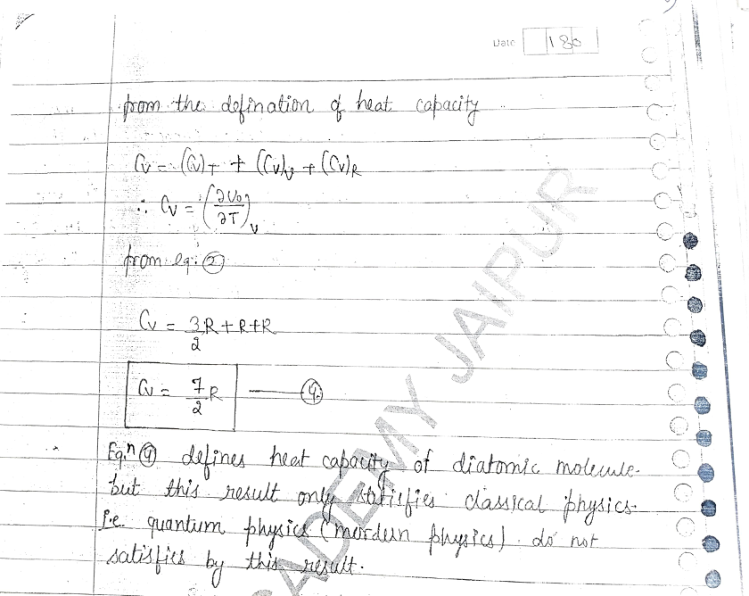 Date 180
from the defination of heat capacity
Cv = (Cv)T + (Cv)v + (Cv)R
∴ Cv = (∂U₀/∂T)v
from eq: ②
Cv = 3/2 R + R + R
Cv = 7/2 R —— ④
Eqⁿ ④ defines heat capacity of diatomic molecule.
but this result only satisfies classical physics.
i.e quantum physics (mordern physics) do not
satisfies by this result.
ACADEMY JAIPUR